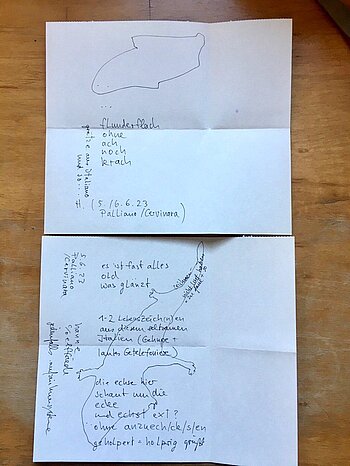 ...
flunderflach
ohne
ach
noch
krach
grüße aus Italiano
und so...
H. (5./6.6.23
Palliano/Cervinara)
5.6.23
Palliano
/Cervinara
es ist fast alles
old
was glänzt
1-2 Lebenszeich(n)en
aus diesem
Italien (Gehupe +
lautes Getelefoniere)
die echse hier
schaut um die
ecke
und echst ext?
ohne anzuech/ck/s/en
geholpert + holprig grüßt
hanne